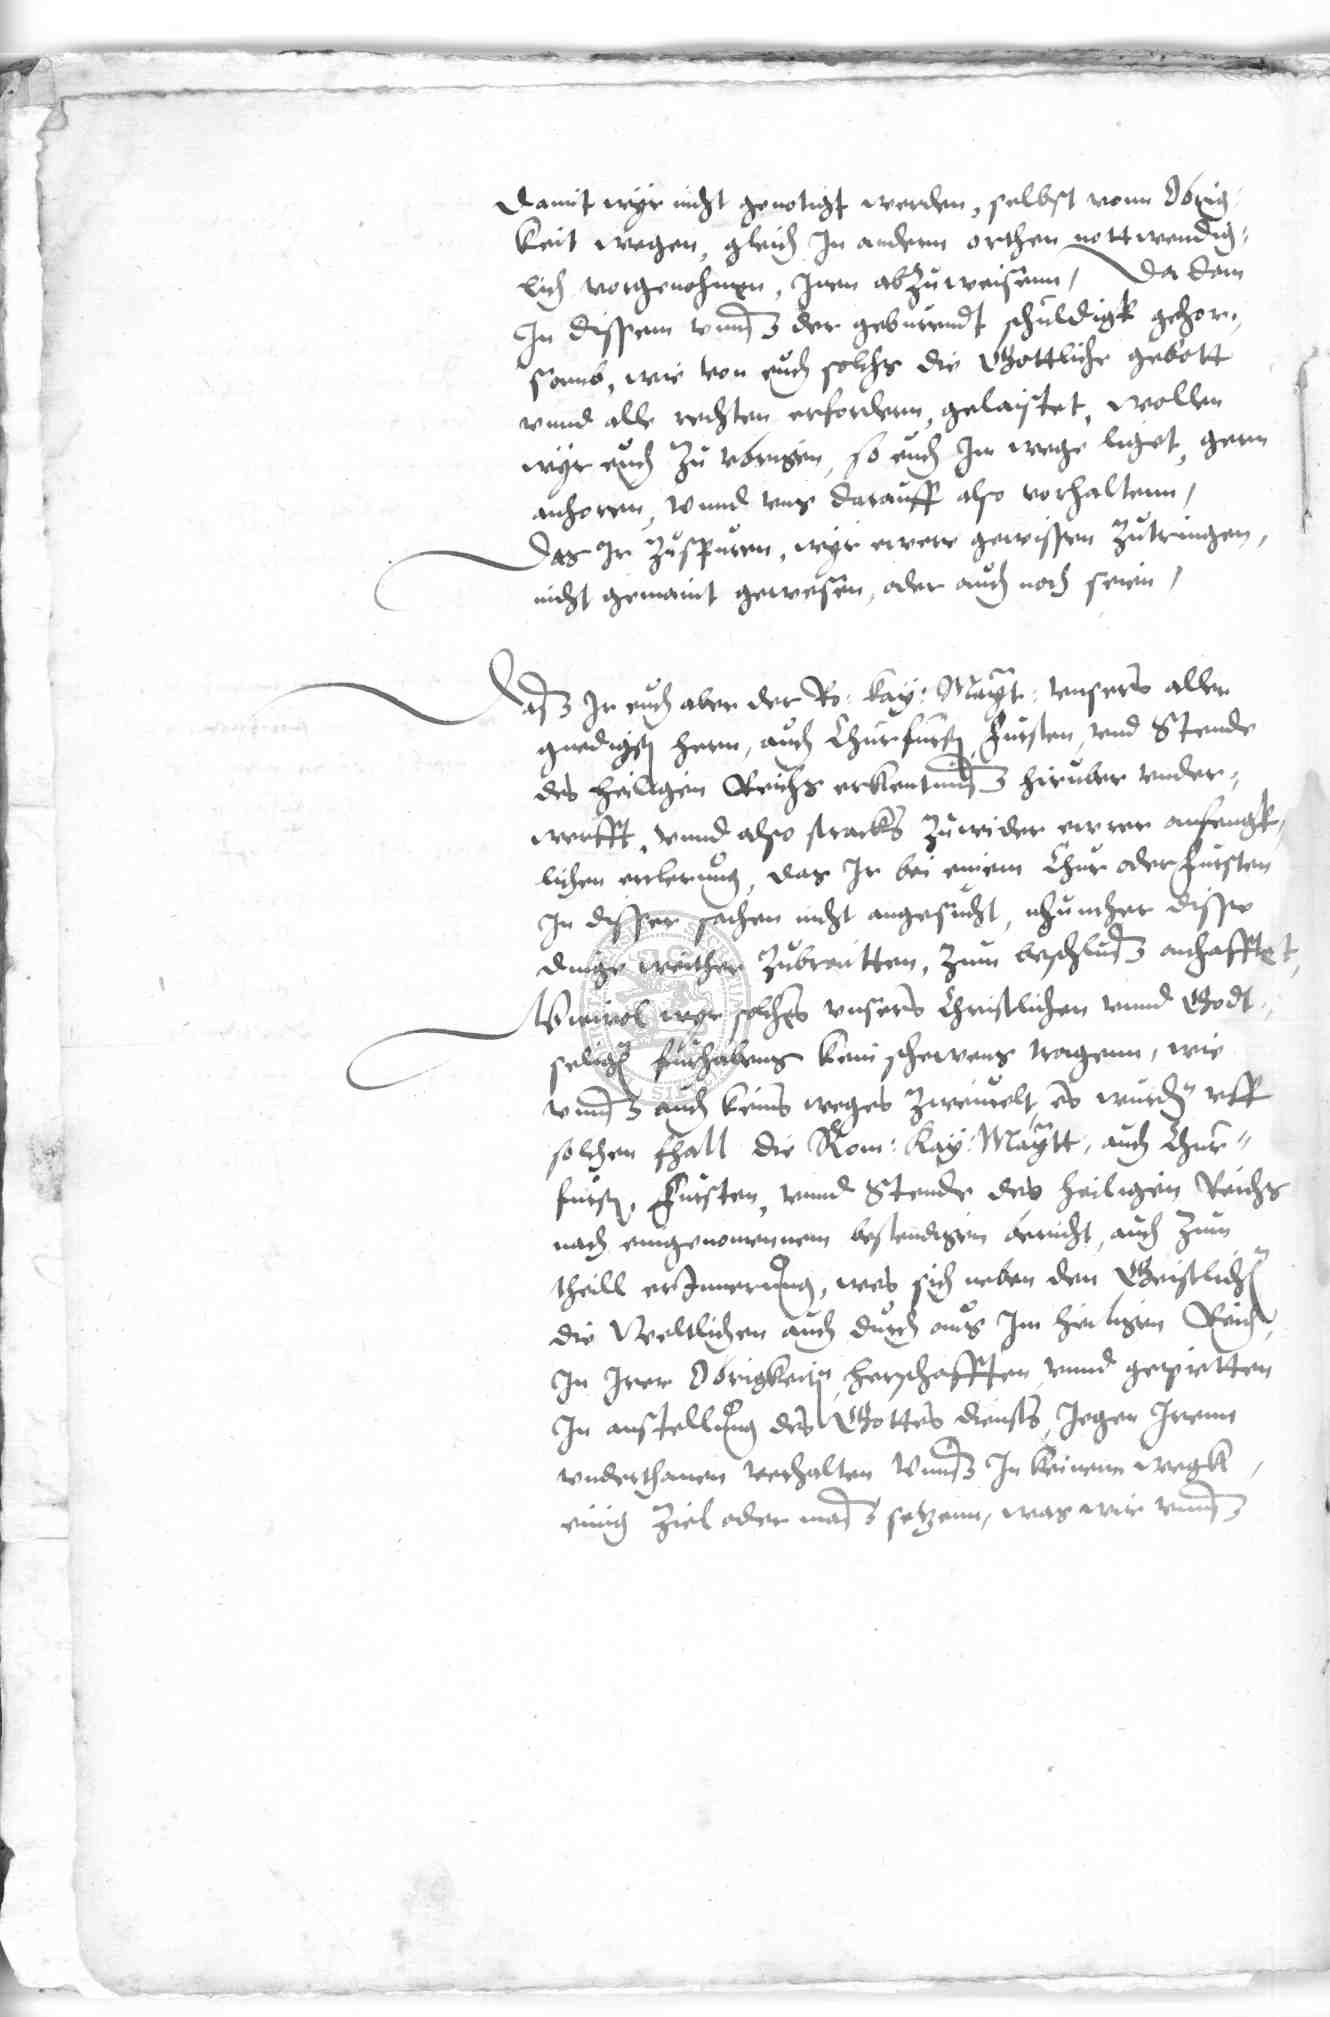 damit wyr nicht genotigt werden, selbst vonn Obrig¬
keit wegen, gleich In andern orthen nottwendig¬
lich vorgenohmen, Inen abzuweisenn, Da dan
In dissem vnnß der geburendt schuldigk gehor¬
samb, wie von euch solchs die Gottliche gebott
vnnd alle rechten erfordern, gelaistet, wollen
wyr euch zu vbrigen, so euch Im wege liget, gern
anhoren, Vnnd vns darauff also vorhaltenn,
Das Ir zuspuren, wyr ewere gewissen zutringen,
nicht gemaint gewesen, oder auch noch seien,
Daß Ir euch aber der Ro: Kay: Mayt: vnsers aller
gnedigst hern, auch Churfurst, Fursten, vnd Stende
des heiligen Reichs erkentnuß hiruber vnder¬
werfft, vnnd also stracks zuwider ewrer anfengk¬
lichen erclerung, das Ir bei einiem Chur oder Fursten
In disser sachen nicht angesucht, disse
dinge weither zubreitten, zum beschluß anhafftet,
Wiewol wyr solchs vnsers Christlichen vnnd Godt¬
selign furhabens kein schewens tragenn, wie
vnnß auch keins weges zweiuelt, es wurden vff
solchen fhall die Rom: Kay: Maytt, auch Chur¬
furst, Fursten, vnnd Stende des heiligen Reichs
nach eingenommenem bestendigen bericht, auch zum
theill erInnerung, wes sich neben den Geistlichen
die Weltlichen auch durch aus Im heiligen Reich,
In Irer Obrigkeiten, herschafften, vnnd gepietten
In anstellung des Gottes diensts, Iegen Irenn
vnderthanen verhalten Vnnß In keinenn wegk,
einig ziel oder maß setzenn, was wir vnnß